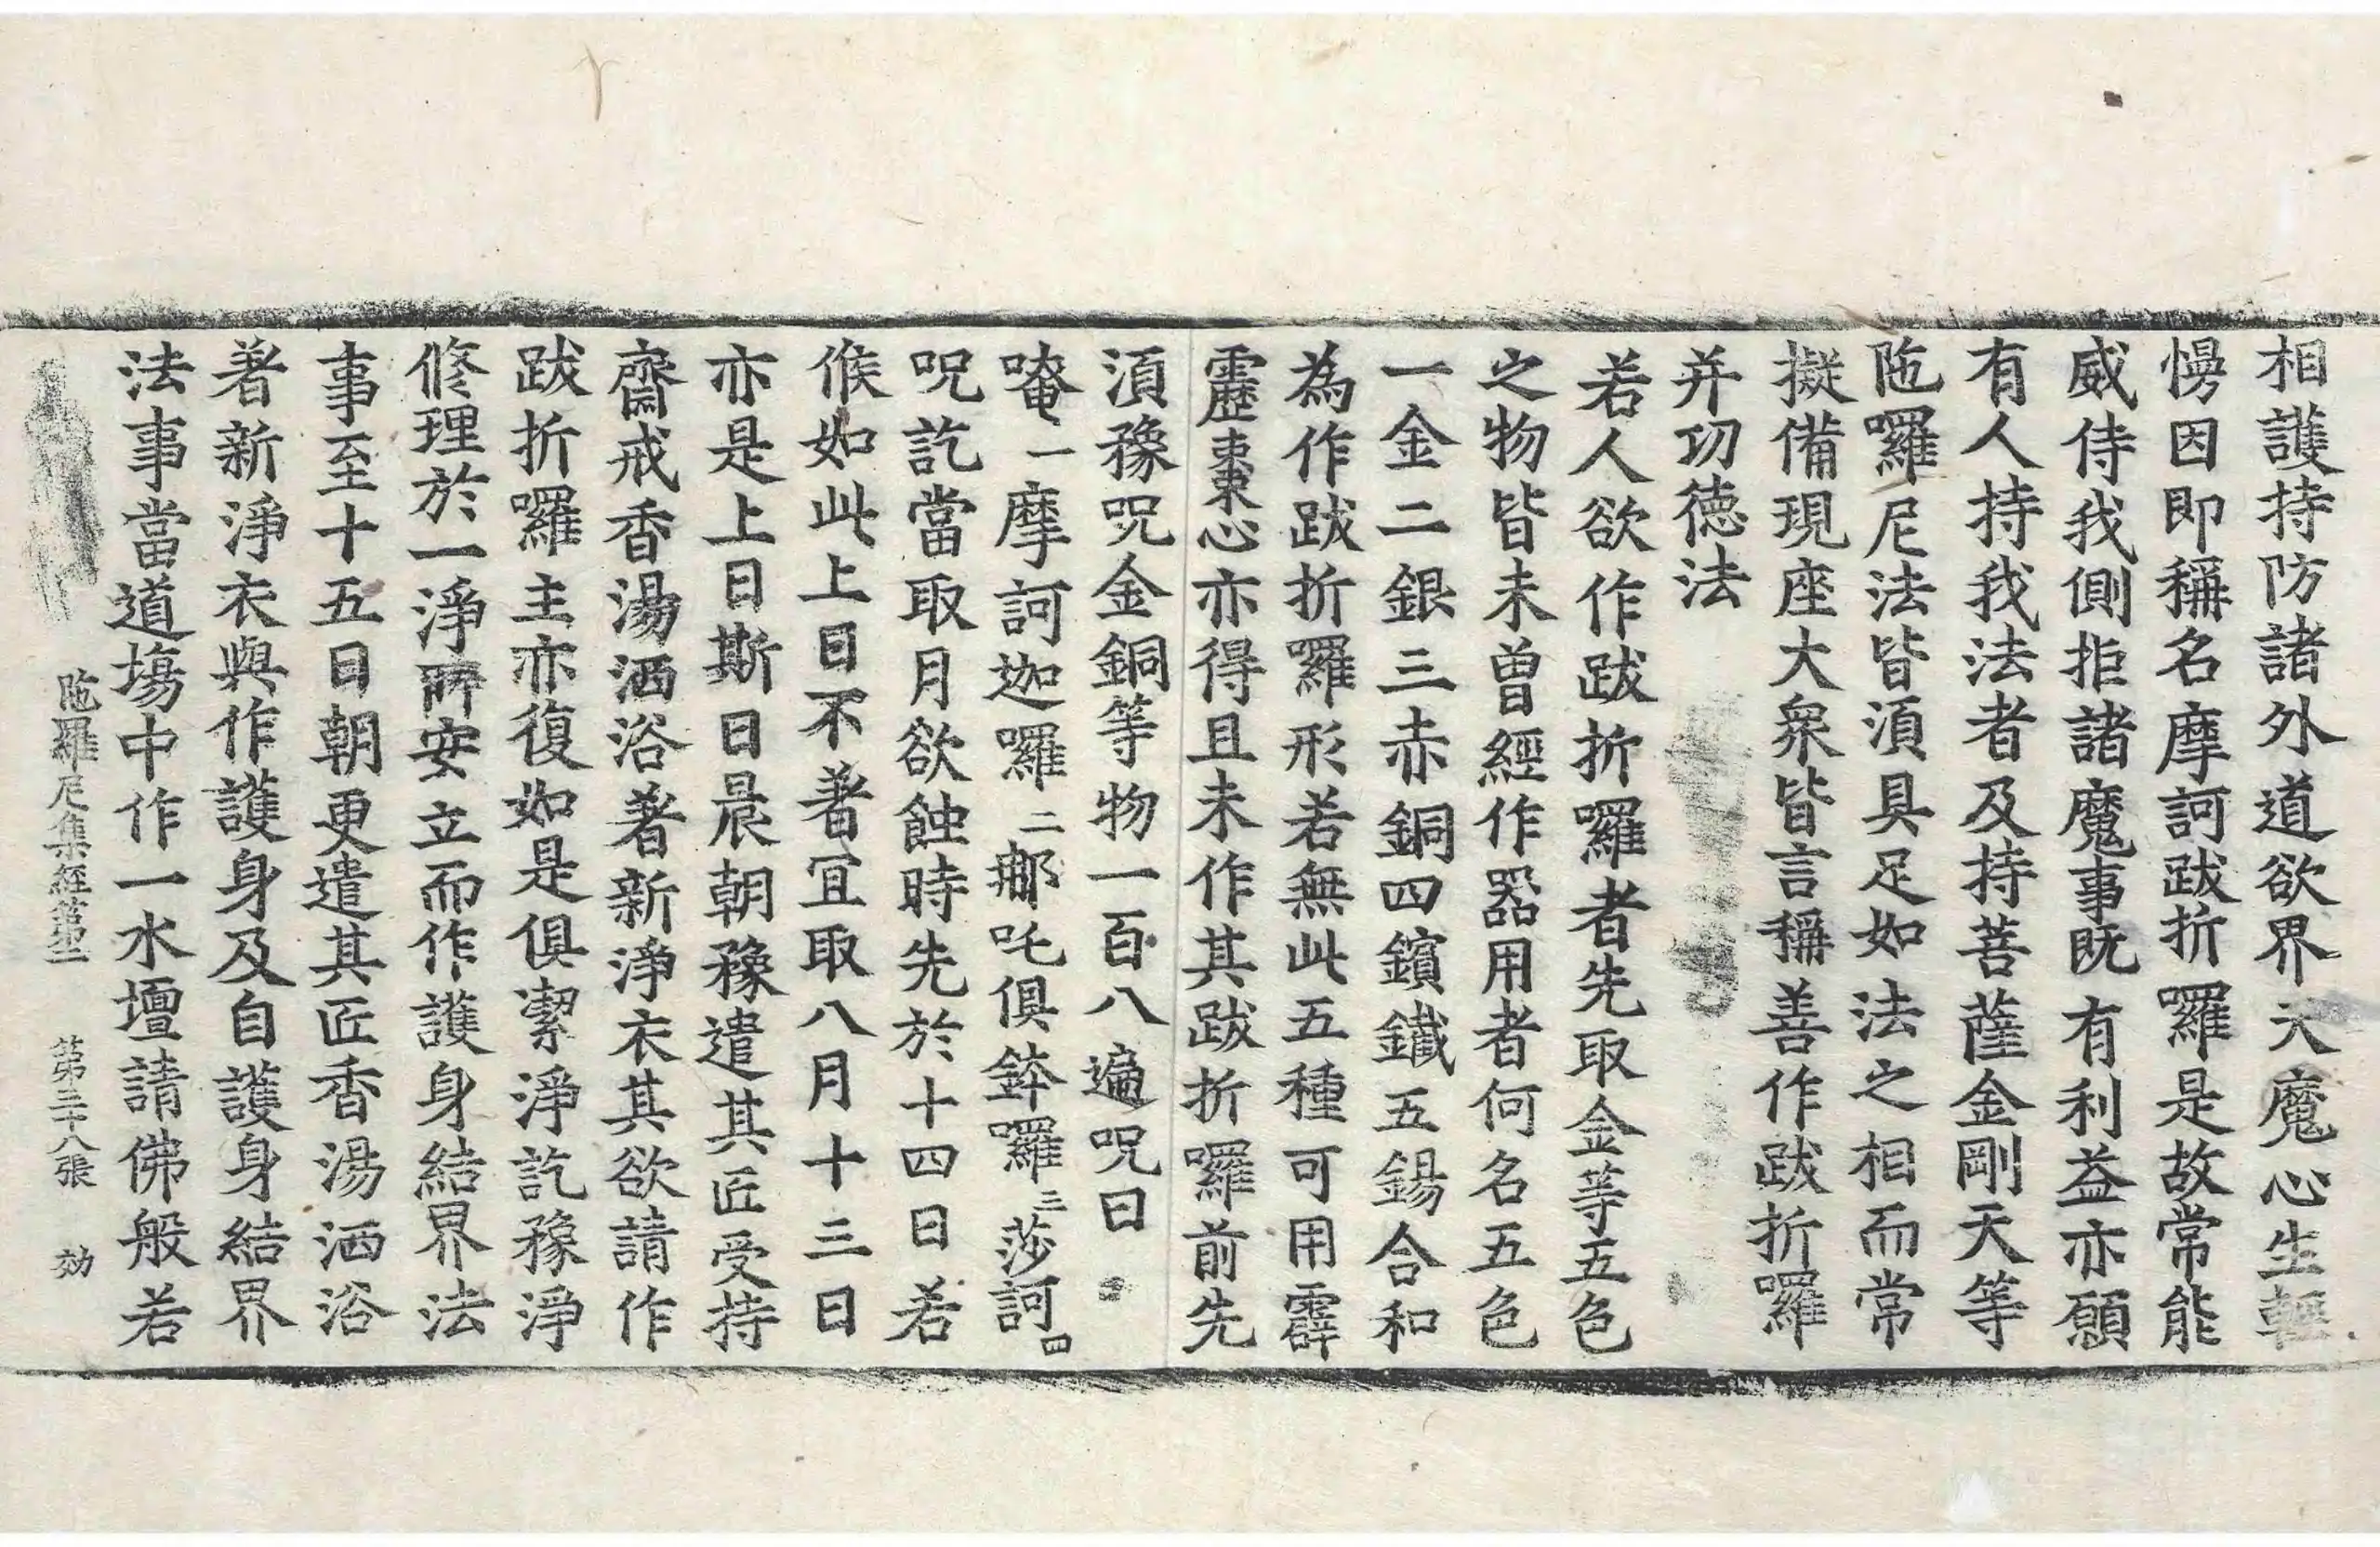 相護持防諸外道欲界天魔心生輕
慢因即稱名摩訶跋折囉是故常能
威侍我側拒諸魔事既有利益亦願
有人持我法者及持菩薩金剛天等
陁囉尼法皆湏具足如法之相而常
擬備現座大衆皆言稱善作跋折囉
并功德法
若人欲作跋折囉者先取金等五色
之物皆未曽經作器用者何名五色
一金二銀三赤銅四鑌鐵五錫合和
為作跋折囉形若無此五種可用霹
靂棗心亦得且未作其跋折囉前先
湏豫呪金銅等物一百八遍呪曰
唵一摩訶迦囉二那吒俱鉢囉三莎訶四
呪訖當取月欲蝕時先於十四日若
候如此上日不著冝取八月十三日
亦是上日斯日晨朝豫遣其匠受持
齋戒香湯洒浴著新淨衣其欲請作
跋折囉主亦復如是俱潔淨訖豫淨
修理於一淨所安立而作護身結界法
事至十五日朝更遣其匠香湯洒浴
著新淨衣與作護身及自護身結界
法事當道塲中作一水壇請佛般若
陁羅尼集經第二 第三十八張 効